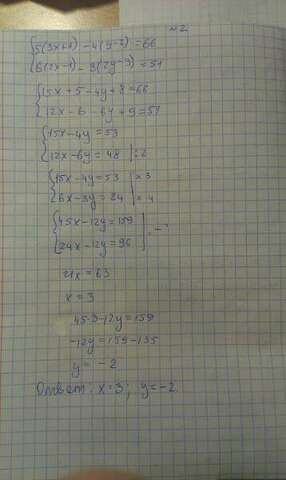 №2
5(3x+1)-4(y-2)=66
6(2x-1)-3(2y-3)=51
15x+5-4y+8=66
12x-6-6y+9=51
15x-4y=53
12x-6y=48 |:2
15x-4y=53 | ×3
6x-3y=24 | ×4
45x-12y=159
24x-12y=96
21x=63
x=3
45·3-12y=159
-12y=159-135
y=-2
Ответ: x=3; y=-2